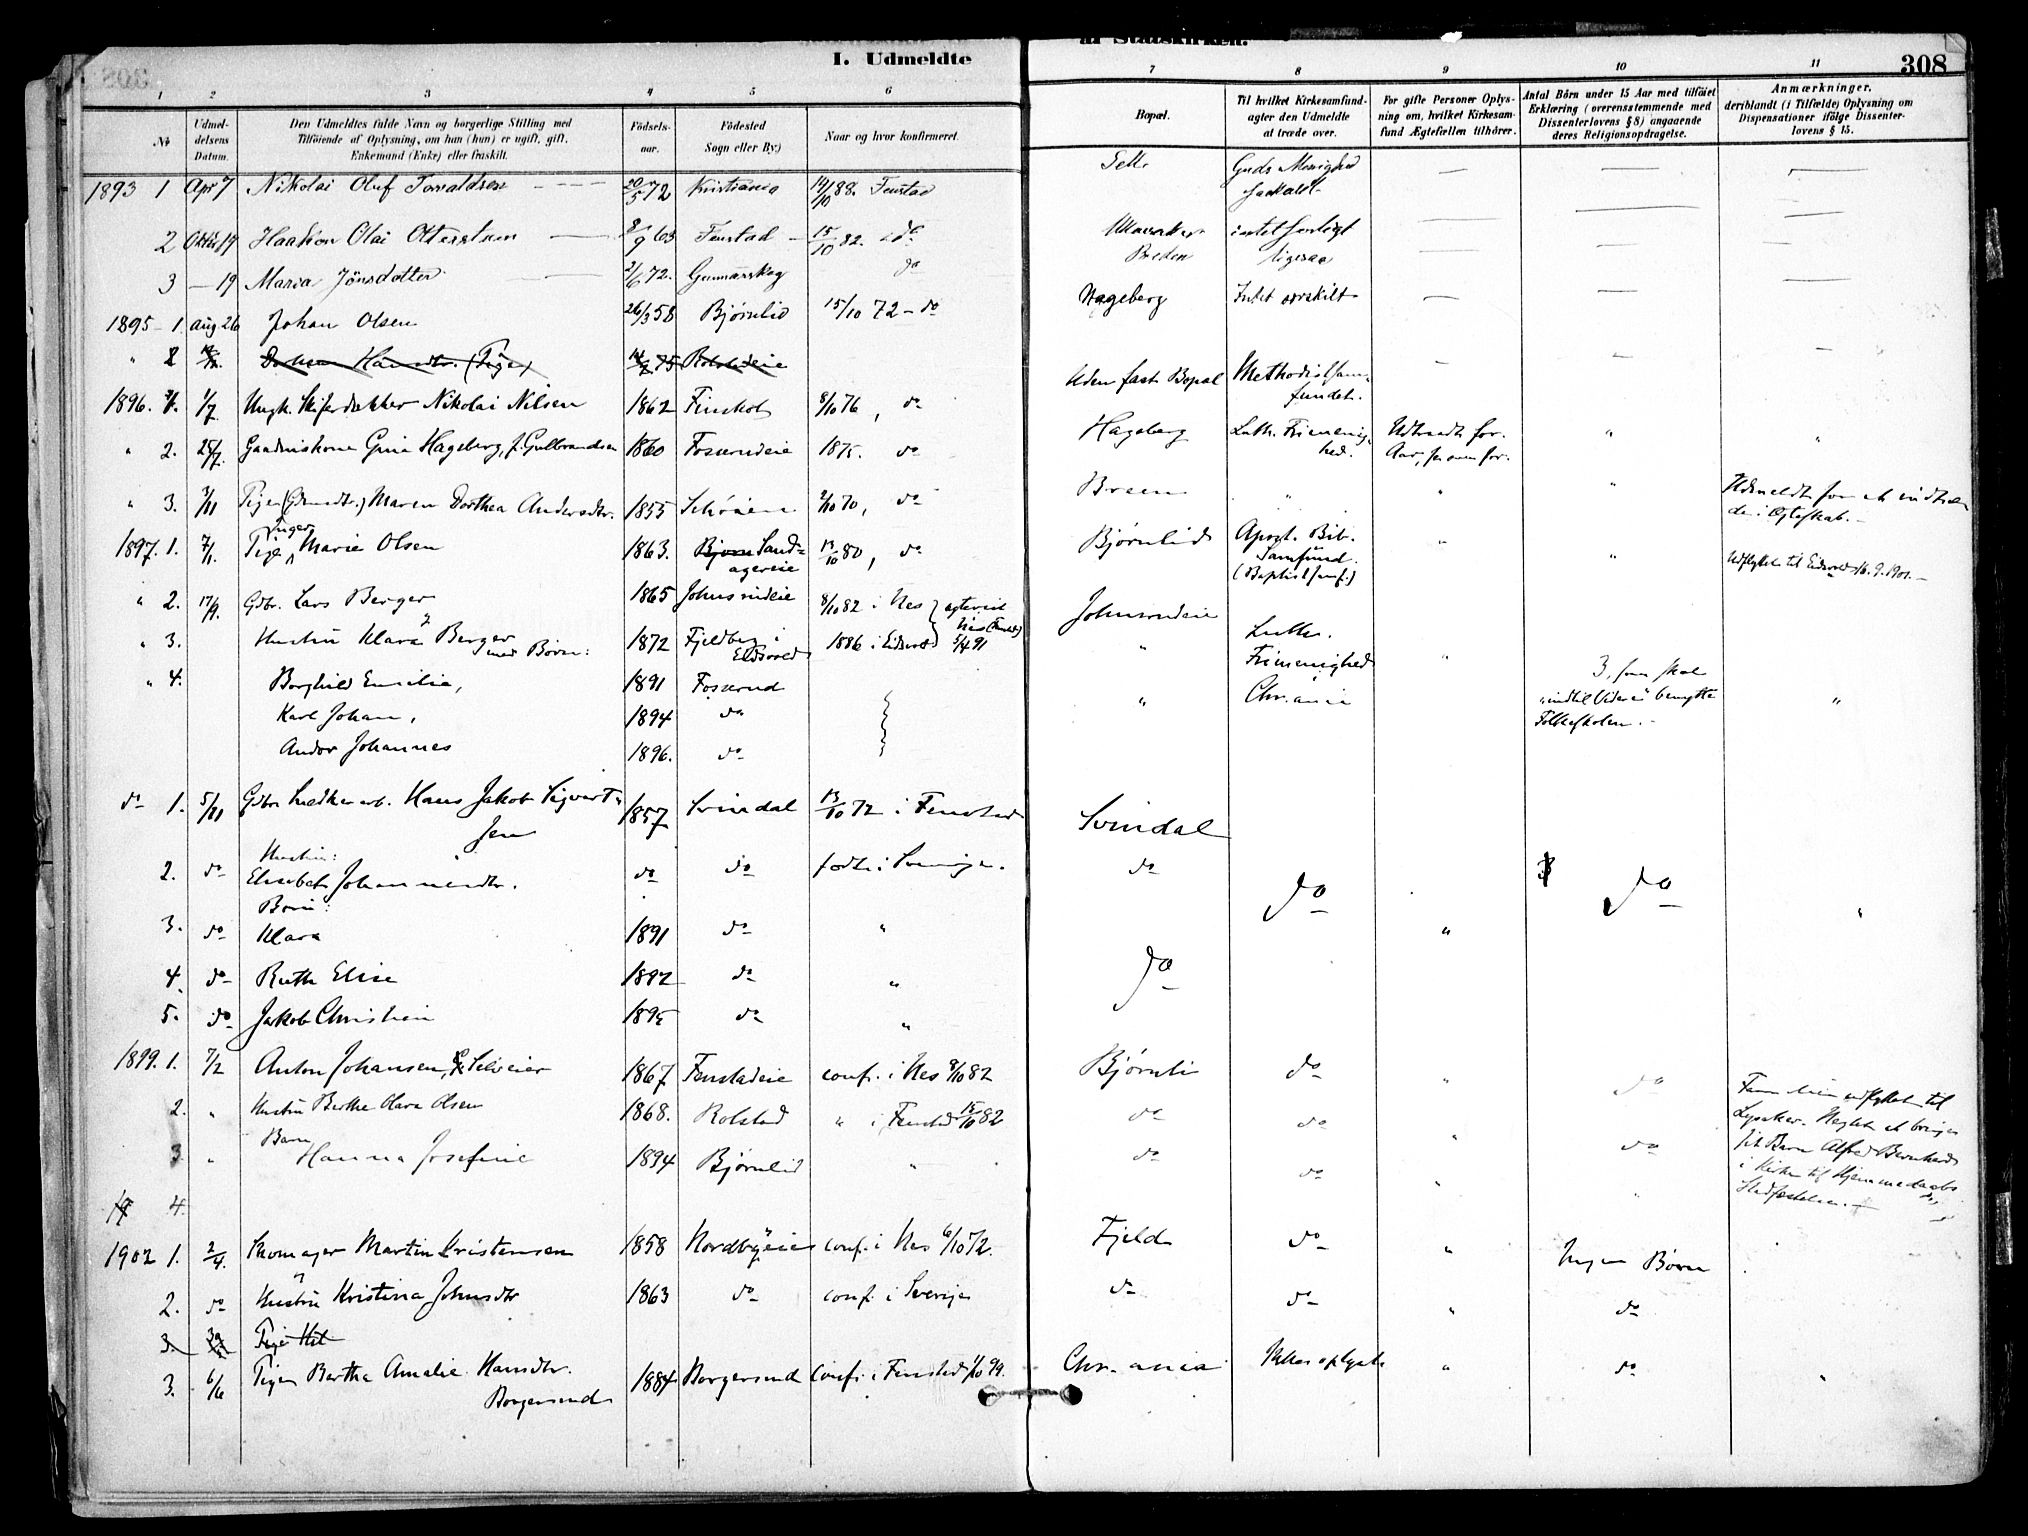 I. Udmeldte
af Statskirken.
308
1 2 3 4 5 6 7 8 9 10 11
No
Udmel-
delsens
Datum.
Den Udmeldtes fulde Navn og borgerlige Stilling med
Tilføiende af Oplysning, om han (hun) er ugift, gift,
Enkemand (Enke) eller fraskilt.
Fødsels-
aar.
Fødested
Sogn eller By.)
Naar og hvor konfirmeret.
Bopæl.
Til hvilket Kirkesamfund-
agter den Udmeldte
at træde over.
For gifte Personer Oplys-
ning om, hvilket Kirkesam-
fund Ægtefællen tilhører.
Antal Børn under 15 Aar med tilføiet
Erklæring (overensstemmende med
Dissenterlovens § 8) angaaende
deres Religionsopdragelse.
Anmærkninger,
deriblandt (i Tilfælde) Oplysning om
Dispensationer ifølge Dissenter-
lovens § 15.
1893 1 Apr 7 Nikolai Oluf 20/5 72 Kristiania 14/10 88. Fenstad Guds Menighed
2 19 Haakon Olai Ottersteen 9 63 Fenstad 15/10 82. do
3 - 19 Maria Jönsdotter 2/6 72. Gunnarskog do ligesaa
1895 - 1 aug 26 Johan Olsen 26/3 58 Bjørnlid 15/10 72 - do Hageberg Intet særskilt
" 2 Hansdtr. (Pige) 75 Rolstadeie
1896. 1. 1/7 Ungk. Skiferdækker Nikolai Nilsen 1862 8/10 76, do Uden fast Bopæl Methodistsam-
fundet.
" 2. 25/7 Gaardmskone Grina Hageberg, f. Gulbrandsen 1860 Fosserudeie 1875. do Hageberg Luth. Frimenig-
hed. Udtraadt for.
Aar,
" 3. 3/11 Pigen Maren Dorthea Andersdtr. 1855 2/10 70, do Breen " " " Udmeldt for at indtræ
de i Ægteskab. -
1897. 1. 7/1. Pige Inger Marie Olsen 1863. Bjørn Sand-
agereie 13/10 80, do Bjørnlid Apost. Bib.
Samfund.
(Baptistsamf.) " " Udflyttet til Eidsvold 16.9.1901. -
" 2. 17/9. Gdbr. Lars Berger 1865 Johnsrudeie 8/10 82 i Nes Johnsrudeie
" 3. Hustru Klara Berger
med Børn: 1872 Fjeldberg i
Eidsvold 1886 i Eidsvold 5/4 91 " Luth.
Frimenighed
Chr.ania " 3, som skal
"indtil Videre" benytte
Folkeskolen. -
" 4. Borghild Emilie, 1891 Fosserud " "
Karl Johan, 1894 do
Andor Johannes 1896. do
do 1. 5/11 Gdbr. Snedker arb. Hans Jakob Sigvert-
sen 1857 Svindal 13/10 72 i Fenstad Svindal
2. do Hustru:
Elisabet Johannesdtr. do do født i Sverige. do do " do "
Børn:
3. do Klara 1891 do "
4. do Ruth Elise 1892 do " do
5. do Jakob Christian 1895 do "
1899. 1. 7/2 Anton Johansen, Selveier 1867 Fenstadeie conf. i Nes 8/10 82 Bjørnli do " do
2. " Hustru Berthe Olava Olsen 1868. Rolstad " i Fenstad 15/10 82 do do " do
3 " Barn Hanna Josefine 1894 Bjørnlid " do do " "
Familien udflyttet til
Lysaker. Negtet at bringe
sit Barn Alfred Bernhard
i Kirke til Hjemmedaabs
Stadfæstelse.
4.
1902 1. 2/4. Skomager Martin Kristensen 1858 Nordbyeie conf. i Nes 6/10 72. Fjeld do " Ingen Børn
2. do Hustru Kristina Johnsdtr 1863 do conf. i Sverige do do " do
3. Pige
3. 6/6 Pigen Bertha Amalie Hansdtr.
Borgersrud 1884 Borgersrud conf. i Fenstad 1/10 99. Chr.ania Ikke oplyst " do "